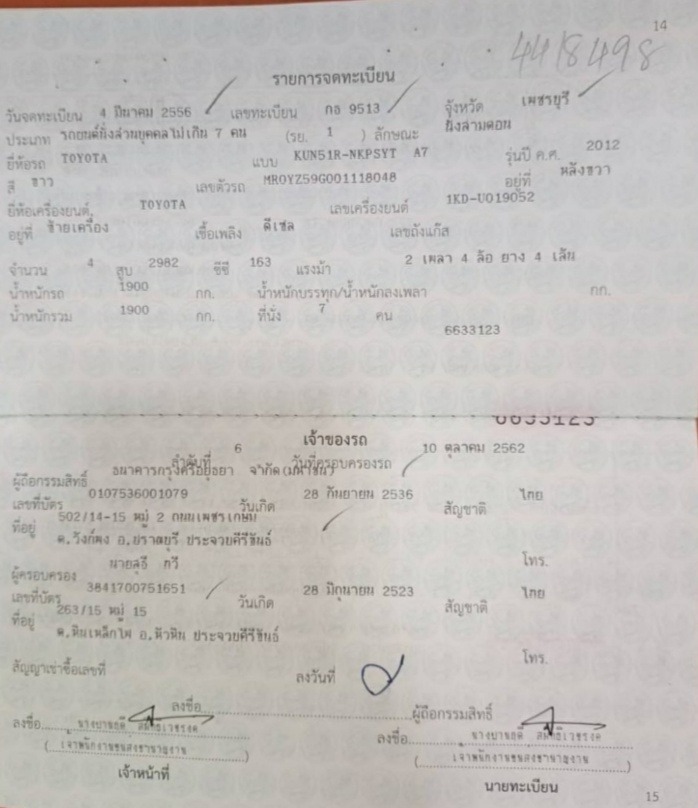 14
4418498
รายการจดทะเบียน
วันจดทะเบียน 4 มีนาคม 2556 เลขทะเบียน กอ 9513 จังหวัด เพชรบุรี
ประเภท รถยนต์นั่งส่วนบุคคลไม่เกิน 7 คน (รย. 1 ) ลักษณะ นั่งสามตอน
ยี่ห้อรถ TOYOTA แบบ KUN51R-NKPSYT A7 รุ่นปี ค.ศ. 2012
สี ขาว เลขตัวรถ MR0YZ59G001118048 อยู่ที่ หลังขวา
ยี่ห้อเครื่องยนต์ TOYOTA เลขเครื่องยนต์ 1KD-U019052
อยู่ที่ ซ้ายเครื่อง เชื้อเพลิง ดีเซล เลขถังแก๊ส
จำนวน 4 สูบ 2982 ซีซี 163 แรงม้า 2 เพลา 4 ล้อ ยาง 4 เส้น
น้ำหนักรถ 1900 กก. น้ำหนักบรรทุก/น้ำหนักลงเพลา กก.
น้ำหนักรวม 1900 กก. ที่นั่ง 7 คน
6633123
6633123
เจ้าของรถ
ลำดับที่ 6 วันที่ครอบครองรถ 10 ตุลาคม 2562
ผู้ถือกรรมสิทธิ์ ธนาคารกรุงศรีอยุธยา จำกัด(มหาชน)
เลขที่บัตร 0107536001079 วันเกิด 28 กันยายน 2536 สัญชาติ ไทย
ที่อยู่ 502/14-15 หมู่ 2 ถนนเพชรเกษม
ต.วังก์พง อ.ปราณบุรี ประจวบคีรีขันธ์
โทร.
ผู้ครอบครอง
เลขที่บัตร 3841700751651 วันเกิด 28 มิถุนายน 2523 สัญชาติ ไทย
ที่อยู่ 263/15 หมู่ 15
ต.หินเหล็กไฟ อ.หัวหิน ประจวบคีรีขันธ์
โทร.
สัญญาเช่าซื้อเลขที่ ลงวันที่
ลงชื่อ ผู้ถือกรรมสิทธิ์
ลงชื่อ ลงชื่อ
(เจ้าพนักงานขนส่งชำนาญงาน) (เจ้าพนักงานขนส่งชำนาญงาน)
เจ้าหน้าที่ นายทะเบียน
15